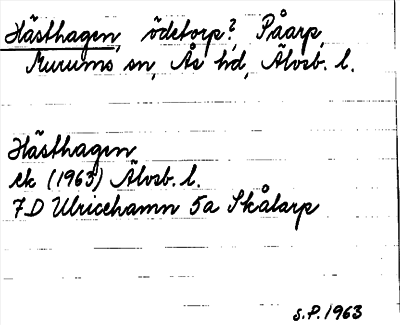 Hästhagen, ödetorp?, Påarp,
Murums sn, Ås hd, Älvsb. l.
Hästhagen
ek (1963) Älvsb. l.
7D Ulricehamn 5a Skålarp
S.P. 1963